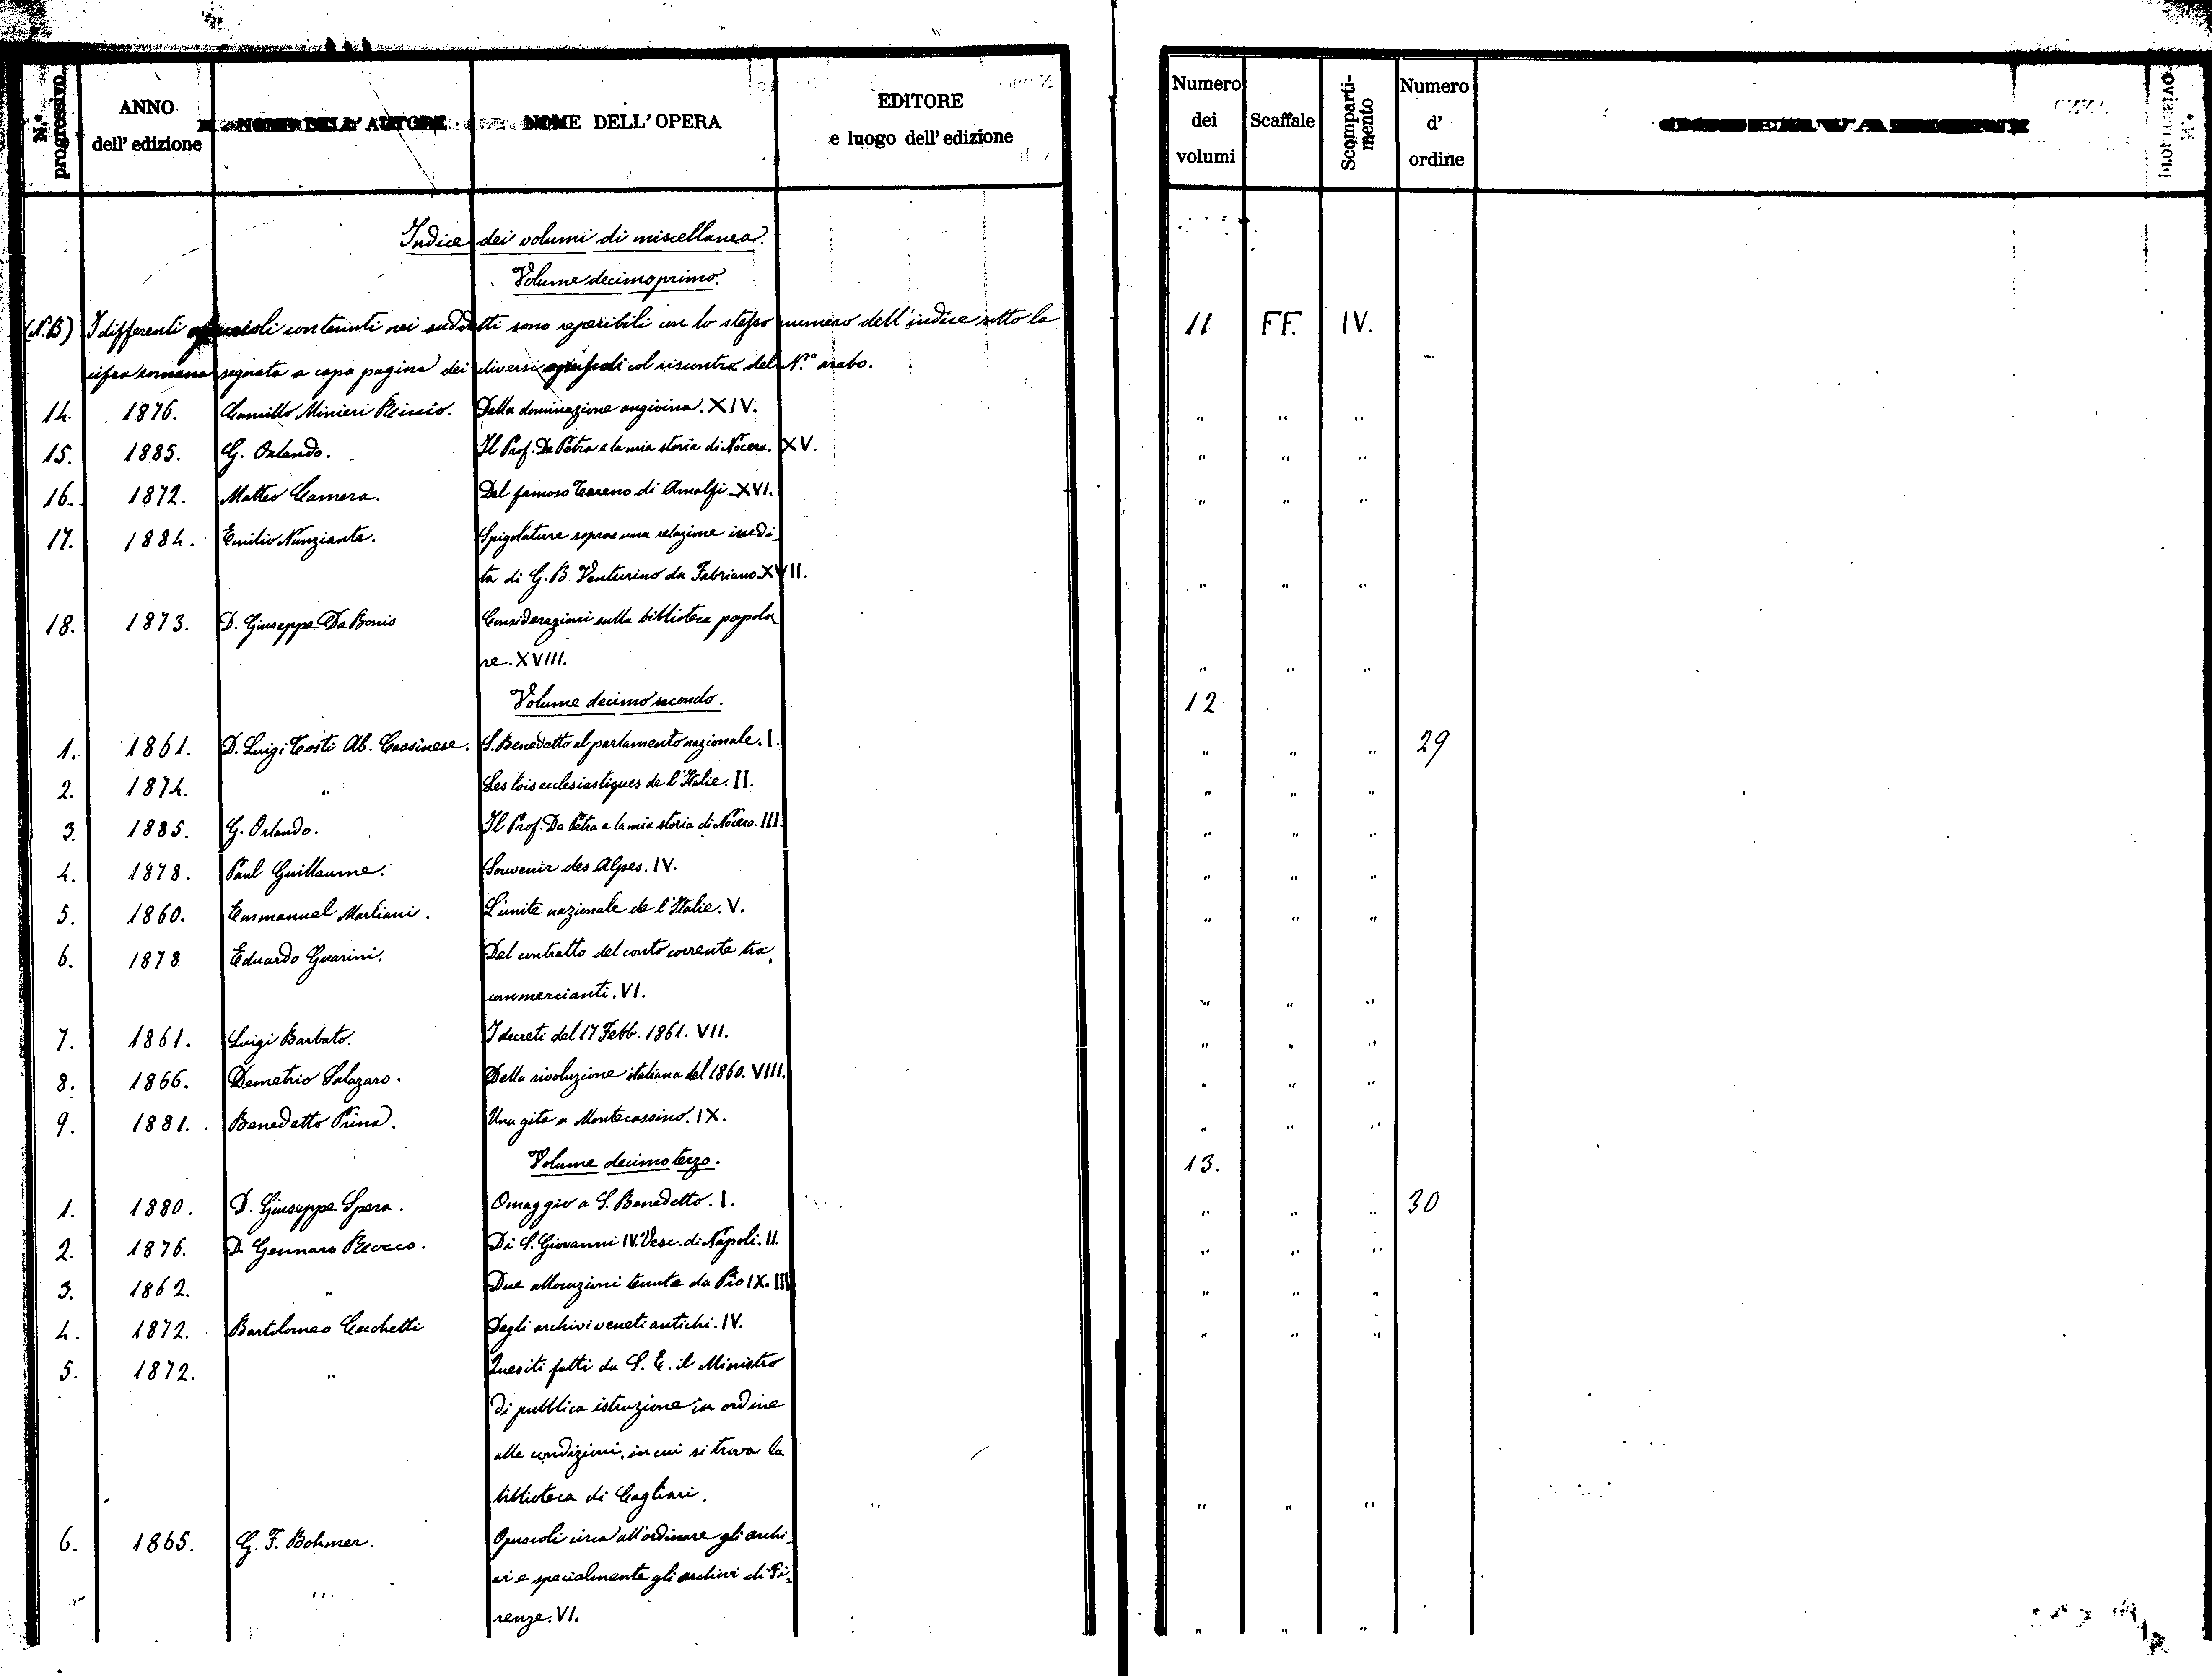 N.° progressivo ANNO dell'edizione NOME DELL'AUTORE NOME DELL'OPERA EDITORE e luogo dell'edizione Numero dei volumi Scaffale Scomparti-mento Numero d'ordine
Indice dei volumi di miscellanea.
Volume decimoprimo.
(N.B) I differenti opuscoli contenuti nei suddetti sono reperibili con lo stesso numero dell'indice sotto la 11 FF. IV.
cifra romana segnata a capo pagina dei diversi opuscoli col riscontro del N.° arabo.
14. 1876. Camillo Minieri Riccio. Della dominazione angioina. XIV. " " "
15. 1885. G. Orlando. Il Prof. De Petra e la mia storia di Nocera. XV. " " "
16. 1872. Matteo Camera. Del famoso Tareno di Amalfi. XVI. " " "
17. 1884. Emilio Nunziante. Spigolature sopra una relazione inedi-
ta di G. B. Venturino da Fabriano. XVII. " " "
18. 1873. D. Giuseppe De Bonis Considerazioni sulla biblioteca popola
re. XVIII. " " "
Volume decimo secondo. 12
1. 1861. D. Luigi Tosti Ab. Cassinese. S. Benedetto al parlamento nazionale. I. " " " 29
2. 1874. " Les lois ecclesiastiques de l'Italie. II. " " "
3. 1885. G. Orlando. Il Prof. De Petra e la mia storia di Nocera. III. " " "
4. 1878. Paul Guillaume. Souvenir des Alpes. IV. " " "
5. 1860. Emmanuel Marliani. L'unite nazionale de l'Italie. V. " " "
6. 1878 Eduardo Guarini. Del contratto del conto corrente tra
commercianti. VI. " " "
7. 1861. Luigi Barbato. I decreti del 17 Febb. 1861. VII. " " "
8. 1866. Demetrio Salazaro. Della rivoluzione italiana del 1860. VIII. " " "
9. 1881. Benedetto Prina. Una gita a Montecassino. IX. " " "
Volume decimoterzo. 13.
1. 1880. D. Giuseppe Spera. Omaggio a S. Benedetto. I. " " " 30
2. 1876. D. Gennaro Rocco. Di S. Giovanni IV. Vesc. di Napoli. II. " " "
3. 1862. " Due allocuzioni tenute da Pio IX. III " " "
4. 1872. Bartolomeo Cecchetti Degli archivi veneti antichi. IV. " " "
5. 1872. " Quesiti fatti da S. E. il Ministro
di pubblica istruzione in ordine
alle condizioni, in cui si trova la
biblioteca di Cagliari. " " "
6. 1865. G. F. Bohmer. Opuscoli circa all'ordinare gli archi-
vi e specialmente gli archivi di Fi-
renze. VI. " " "